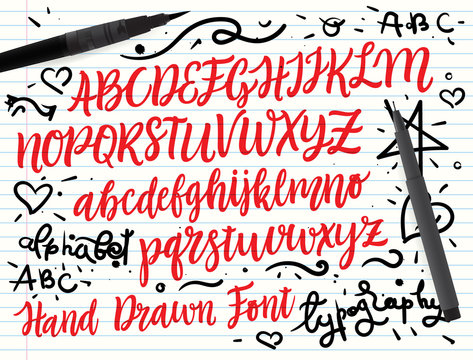 ABC
ABCDEFGHIJKLM
NOPQRSTUVWXYZ
abcdefghijklmno
alphabet
pqrstuvwxyz
ABC
Hand Drawn Font
typography